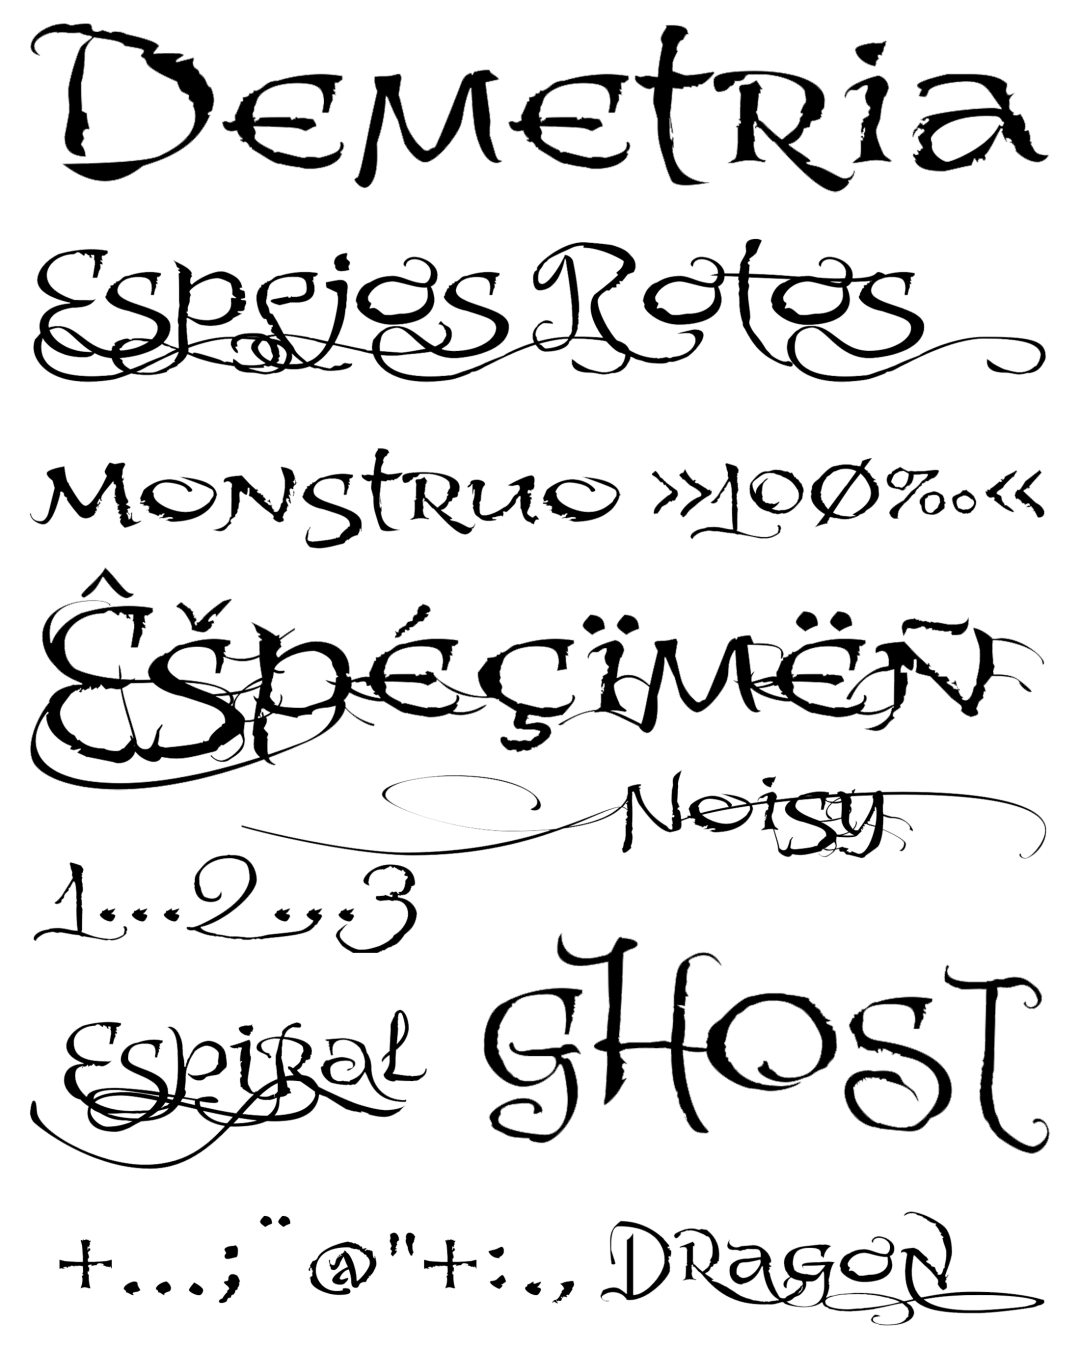 Demetria
Espejos Rotos
Monstruo »100‰«
Êšpéçïmëñ
Noisy
1...2...3
GHOST
Espiral
+...;¨@"+:., Dragon